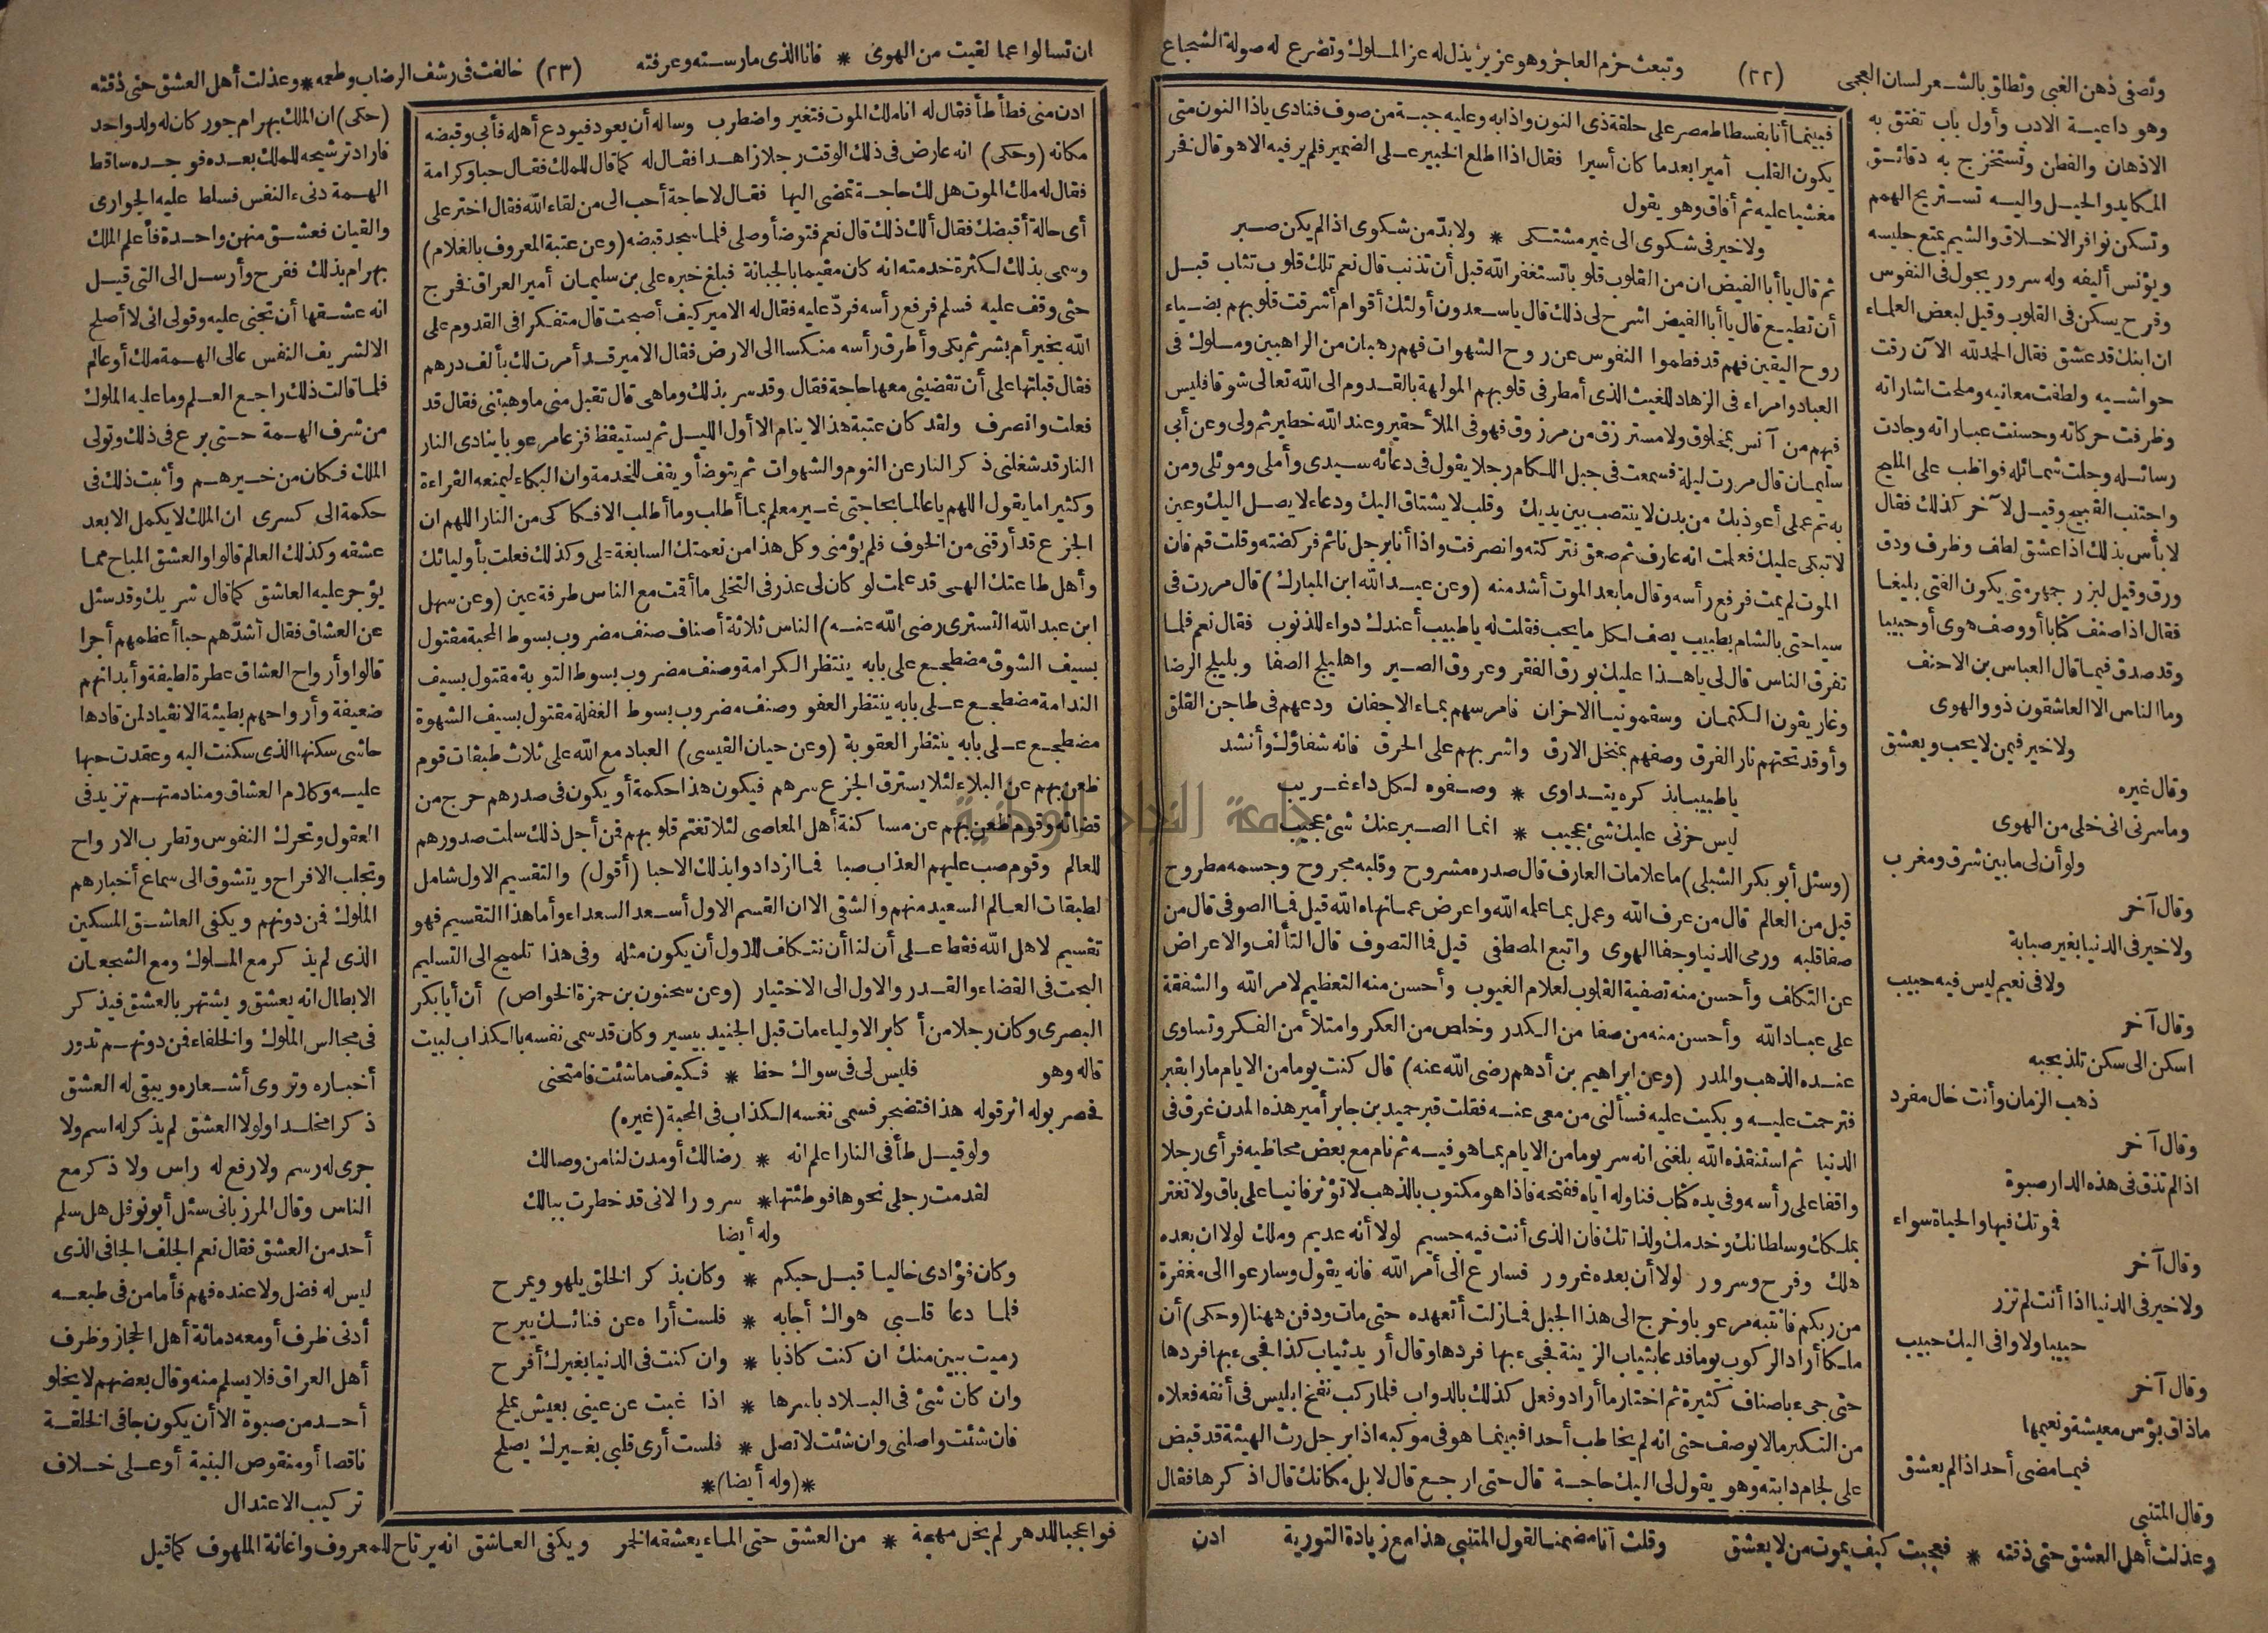 وتصفى ذهن الغبى وتطلق بالشعر لسان العجمى (٢٢) وتبعث حزم العاجز وهو عزيز يذل له عز الملوك وتضرع له صولة الشجاع
وهو داعية الادب وأول باب تفتق به
الاذهان والفطن وتستخرج به دقائق
المكايد والحيل واليه تستريح الهمم
وتسكن نوافر الاخلاق والشيم يمتع جليسه
ويؤنس أليفه وله سرور يجول فى النفوس
وفرح يسكن فى القلوب وقيل لبعض العلماء
ان ابنك قد عشق فقال الحمد لله الآن رقت
حواشيه ولطفت معانيه وملحت اشاراته
وظرفت حركاته وحسنت عباراته وجادت
رسائله وحلت شمائله فواظب على المليح
واجتنب القبيح وقيل لآخر كذلك فقال
لا بأس بذلك اذا عشق لطف وظرف ودق
ورق وقيل لبزرجمهر متى يكون الفتى بليغا
فقال اذا صنف كتابا أو وصف هوى أو حبيبا
وقد صدق فيما قال العباس بن الاحنف
وما الناس الا العاشقون ذوو الهوى
ولا خير فيمن لا يحب ويعشق
وقال غيره
وما سرنى انى خلى من الهوى
ولو أن لى ما بين شرق ومغرب
وقال آخر
ولا خير فى الدنيا بغير صبابة
ولا فى نعيم ليس فيه حبيب
وقال آخر
اسكن الى سكن تلذ بحبه
ذهب الزمان وأنت خال مفرد
وقال آخر
اذا لم تذق فى هذه الدار صبوة
فموتك فيها والحياة سواء
وقال آخر
ولا خير فى الدنيا اذا أنت لم تزر
حبيبا ولا وافى اليك حبيب
وقال آخر
ماذاق بؤس معيشة ونعيمها
فيما مضى أحد اذا لم يعشق
وقال المتنبى
وعذلت أهل العشق حتى ذقته * فعجبت كيف يموت من لا يعشق وقلت أنا مضمنا لقول المتنبى هذا مع زيادة التورية ادن
فبينما أنا بفسطاط مصر على حلقة ذى النون واذا به وعليه جبة من صوف فنادى ياذا النون متى
يكون القلب أميرا بعدما كان أسيرا فقال اذا اطلع الخبير على الضمير فلم ير فيه الا هو قال فخر
مغشيا عليه ثم أفاق وهو يقول
ولا خير فى شكوى الى غير مشتكى * ولا بدّ من شكوى اذا لم يكن صبر
ثم قال يا أبا الفيض ان من القلوب قلوبا تستغفر الله قبل أن تذنب قال نعم تلك قلوب تثاب قبل
أن تطيع قال يا أبا الفيض اشرح لى ذلك قال يا سعدون أولئك أقوام أشرقت قلوبهم بضياء
روح اليقين فهم قد فطموا النفوس عن روح الشهوات فهم رهبان من الراهبين وملوك فى
العباد وامراء فى الزهاد للغيث الذى أمطر فى قلوبهم المولهة بالقدوم الى الله تعالى شوقا فليس
فيهم من آنس بمخلوق ولا مسترزق من مرزوق فهو فى الملأ حقير وعند الله خطير ثم ولى وعن أبى
سليمان قال مررت ليلة فسمعت فى جبل اللكام رجلا يقول فى دعائه سيدى وأملى وموئلى ومن
به تم عملى أعوذ بك من بدن لا ينتصب بين يديك وقلب لا يشتاق اليك ودعاء لا يصل اليك وعين
لا تبكى عليك فعلمت انه عارف ثم صعق فتركته وانصرفت واذا أنا برجل نائم فركضته وقلت قم فان
الموت لم يمت فرفع رأسه وقال ما بعد الموت أشد منه (وعن عبد الله ابن المبارك) قال مررت فى
سياحتى بالشام بطبيب يصف لكل ما يحب فقلت له يا طبيب أعندك دواء للذنوب فقال نعم فلما
تفرق الناس قال لى ياهذا عليك بورق الفقر وعروق الصبر واهليلج الصفا وبليلج الرضا
وغاريقون الكتمان وسقمونيا الاحزان فامرسهم بماء الاجفان ودعهم فى طاجن القلق
وأوقد تحتهم نار الفرق وصفهم بمنخل الارق واشربهم على الحرق فانه شفاؤك وأنشد
يا طبيبا بذكره يتداوى * وصفوه لكل داء غريب
ليس حزنى عليك شئ عجيب * انما الصبر عنك شئ عجيب
(وسئل أبو بكر الشبلى) ما علامات العارف قال صدره مشروح وقلبه مجروح وجسمه مطروح
قيل من العالم قال من عرف الله وعمل بما علمه الله واعرض عما نهاه الله قيل فما الصوفى قال من
صفا قلبه ورمى الدنيا وجفا الهوى واتبع المصطفى قيل فما التصوف قال التألف والاعراض
عن التكلف وأحسن منه تصفية القلوب لعلام الغيوب وأحسن منه التعظيم لامر الله والشفقة
على عباد الله وأحسن منه من صفا من الكدر وخلص من العكر وامتلأ من الفكر وتساوى
عنده الذهب والمدر (وعن ابراهيم بن أدهم رضى الله عنه) قال كنت يوما من الايام مارا بقبر
فترحمت عليه وبكيت عليه فسألنى من معى عنه فقلت قبر حميد بن جابر أمير هذه المدن غرق فى
الدنيا ثم استنقذه الله بلغنى انه سر يوما من الايام بما هو فيه ثم نام مع بعض محاظيه فرأى رجلا
واقفا على رأسه وفى يده كتاب فناوله اياه ففتحه فاذا هو مكتوب بالذهب لا تؤثر فانيا على باق ولا تغتر
بملكك وسلطانك وخدمك ولذاتك فان الذى أنت فيه جسيم لولا أنه عديم وملك لولا ان بعده
هلك وفرح وسرور لولا أن بعده غرور فسارع الى أمر الله فانه يقول وسارعوا الى مغفرة
من ربكم فانتبه مرعوبا وخرج الى هذا الجبل فمازلت أتعهده حتى مات ودفن ههنا (وحكى) أن
ملكا أراد الركوب يوما فدعا بثياب الزينة فجىء بها فردها وقال أريد ثياب كذا فجىء بها فردها
حتى جىء باصناف كثيرة ثم اختار ما أراد وفعل كذلك بالدواب فلما ركب نفخ ابليس فى أنفه فعلاه
من التكبر مالا يوصف حتى انه لم يخاطب أحدا فبينما هو فى موكبه اذا برجل رث الهيئة قد قبض
على لجام دابته وهو يقول لى اليك حاجة قال حتى ارجع قال لا بل مكانك قال اذكرها فقال
ان تسالوا عما لقيت من الهوى * فانا الذى مارسته وعرفته (٢٣) خالفت فى رشف الرضاب وطعمه * وعذلت أهل العشق حتى ذقته
ادن منى فطأطأ فقال له انا ملك الموت فتغير واضطرب وساله أن يعود فيودع أهله فأبى وقبضه
مكانه (وحكى) انه عارض فى ذلك الوقت رجلا زاهدا فقال له كما قال للملك فقال حبا وكرامة
فقال له ملك الموت هل لك حاجة تمضى اليها فقال لا حاجة أحب الى من لقاء الله فقال اختر على
أى حالة أقبضك فقال ألك ذلك قال نعم فتوضأ وصلى فلما سجد قبضه (وعن عتبة المعروف بالغلام)
وسمى بذلك لكثرة خدمته انه كان مقيما بالجبانة فبلغ خبره على بن سليمان أمير العراق فخرج
حتى وقف عليه فسلم فرفع رأسه فردّ عليه فقال له الامير كيف أصبحت قال متفكرا فى القدوم على
الله بخير أم بشر ثم بكى وأطرق رأسه منكسا الى الارض فقال الامير قد أمرت لك بألف درهم
فقال قبلتها على أن تقضينى معها حاجة فقال وقد سر بذلك وما هى قال تقبل منى ما وهبتنى فقال قد
فعلت وانصرف ولقد كان عتبة هذا لا ينام الا أول الليل ثم يستيقظ فزعا مرعوبا ينادى النار
النار قد شغلنى ذكر النار عن النوم والشهوات ثم يتوضأ ويقف للخدمة وان البكاء ليمنعه القراءة
وكثيرا ما يقول اللهم يا عالما بحاجتى غير معلم بما أطلب وما أطلب الا فكاكى من النار اللهم ان
الجزع قد أرقنى من الخوف فلم يؤمنى وكل هذا من نعمتك السابغة على وكذلك فعلت بأوليائك
وأهل طاعتك الهى قد علمت لو كان لى عذر فى التخلى ما أقمت مع الناس طرفة عين (وعن سهل
ابن عبد الله التسترى رضى الله عنه) الناس ثلاثة أصناف صنف مضروب بسوط المحبة مقتول
بسيف الشوق مضطجع على بابه ينتظر الكرامة وصنف مضروب بسوط التوبة مقتول بسيف
الندامة مضطجع على بابه ينتظر العفو وصنف مضروب بسوط الغفلة مقتول بسيف الشهوة
مضطجع على بابه ينتظر العقوبة (وعن حيان القيسى) العباد مع الله على ثلاث طبقات قوم
ظعن بهم عن البلاء لئلا يسترق الجزع سرهم فيكون هذا حكمة أو يكون فى صدرهم حرج من
قضائه وقوم ظعن بهم عن مساكنة أهل المعاصى لئلا تغتم قلوبهم فمن أجل ذلك سلمت صدورهم
للعالم وقوم صب عليهم العذاب صبا فما ازدادوا بذلك الا حبا (أقول) والتقسيم الاول شامل
لطبقات العالم السعيد منهم والشقى الا ان القسم الاول أسعد السعداء وأما هذا التقسيم فهو
تقسيم لاهل الله فقط على أن لنا أن نتكلف للاول أن يكون مثله وفى هذا تلميح الى التسليم
البحت فى القضاء والقدر والاول الى الاختيار (وعن سحنون بن حمزة الخواص) أن أبا بكر
البصرى وكان رجلا من أكابر الاولياء مات قبل الجنيد بيسير وكان قد سمى نفسه بالكذاب لبيت
قاله وهو فليس لى فى سواك حظ * فكيف ما شئت فامتحنى
فحصر بوله اثر قوله هذا فتضجر فسمى نفسه الكذاب فى المحبة (غيره)
ولو قيل طأ فى النار اعلم انه * رضا لك أو مدن لنا من وصالك
لقدمت رجلى نحوها فوطئتها * سرورا لانى قد خطرت ببالك
وله أيضا
وكان فؤادى خاليا قبل حبكم * وكان بذكر الخلق يلهو ويمرح
فلما دعا قلبى هواك أجابه * فلست أراه عن فنائك يبرح
رميت ببين منك ان كنت كاذبا * وان كنت فى الدنيا بغيرك أفرح
وان كان شئ فى البلاد باسرها * اذا غبت عن عينى بعيش يملح
فان شئت واصلنى وان شئت لا تصل * فلست أرى قلبى بغيرك يصلح
*(وله أيضا)*
(حكى) ان الملك بهرام جور كان له ولد واحد
فاراد ترشيحه للملك بعده فوجده ساقط
الهمة دنىء النفس فسلط عليه الجوارى
والقيان فعشق منهن واحدة فأعلم الملك
بهرام بذلك ففرح وأرسل الى التى قيل
انه عشقها أن تجنى عليه وقولى انى لا أصلح
الا لشريف النفس عالى الهمة ملك أو عالم
فلما قالت ذلك راجع العلم وما عليه الملوك
من شرف الهمة حتى برع فى ذلك وتولى
الملك فكان من خيرهم وأثبت ذلك فى
حكمة الى كسرى ان الملك لا يكمل الا بعد
عشقه وكذلك العالم قالوا والعشق المباح مما
يؤجر عليه العاشق كما قال شريك وقد سئل
عن العشاق فقال أشدّهم حبا أعظمهم أجرا
قالوا وأرواح العشاق عطرة لطيفة وأبدانهم
ضعيفة وأرواحهم بطيئة الانقياد لمن قادها
حاشى سكنها الذى سكنت اليه وعقدت حبها
عليه وكلام العشاق ومنادمتهم تزيد فى
العقول وتحرك النفوس وتطرب الارواح
وتجلب الافراح ويتشوق الى سماع أخبارهم
الملوك فمن دونهم ويكفى العاشق المسكين
الذى لم يذكر مع الملوك ومع الشجعان
الابطال انه يعشق ويشتهر بالعشق فيذكر
فى مجالس الملوك والخلفاء فمن دونهم تدور
أخباره وتروى أشعاره ويبقى له العشق
ذكرا مخلدا ولولا العشق لم يذكر له اسم ولا
جرى له رسم ولا رفع له راس ولا ذكر مع
الناس وقال المرزبانى سئل أبو نوفل هل سلم
أحد من العشق فقال نعم الجلف الجافى الذى
ليس له فضل ولا عنده فهم فأما من فى طبعه
أدنى ظرف أو معه دماثة أهل الحجاز وظرف
أهل العراق فلا يسلم منه وقال بعضهم لا يخلو
أحد من صبوة الا أن يكون جافى الخلقة
ناقصا أو منقوص البنية أو على خلاف
تركيب الاعتدال
فواعجبا للدهر لم يخل مهجة * من العشق حتى الماء يعشقه الخمر ويكفى العاشق انه يرتاح للمعروف واغاثة الملهوف كما قيل
جامعة النجاح الوطنية